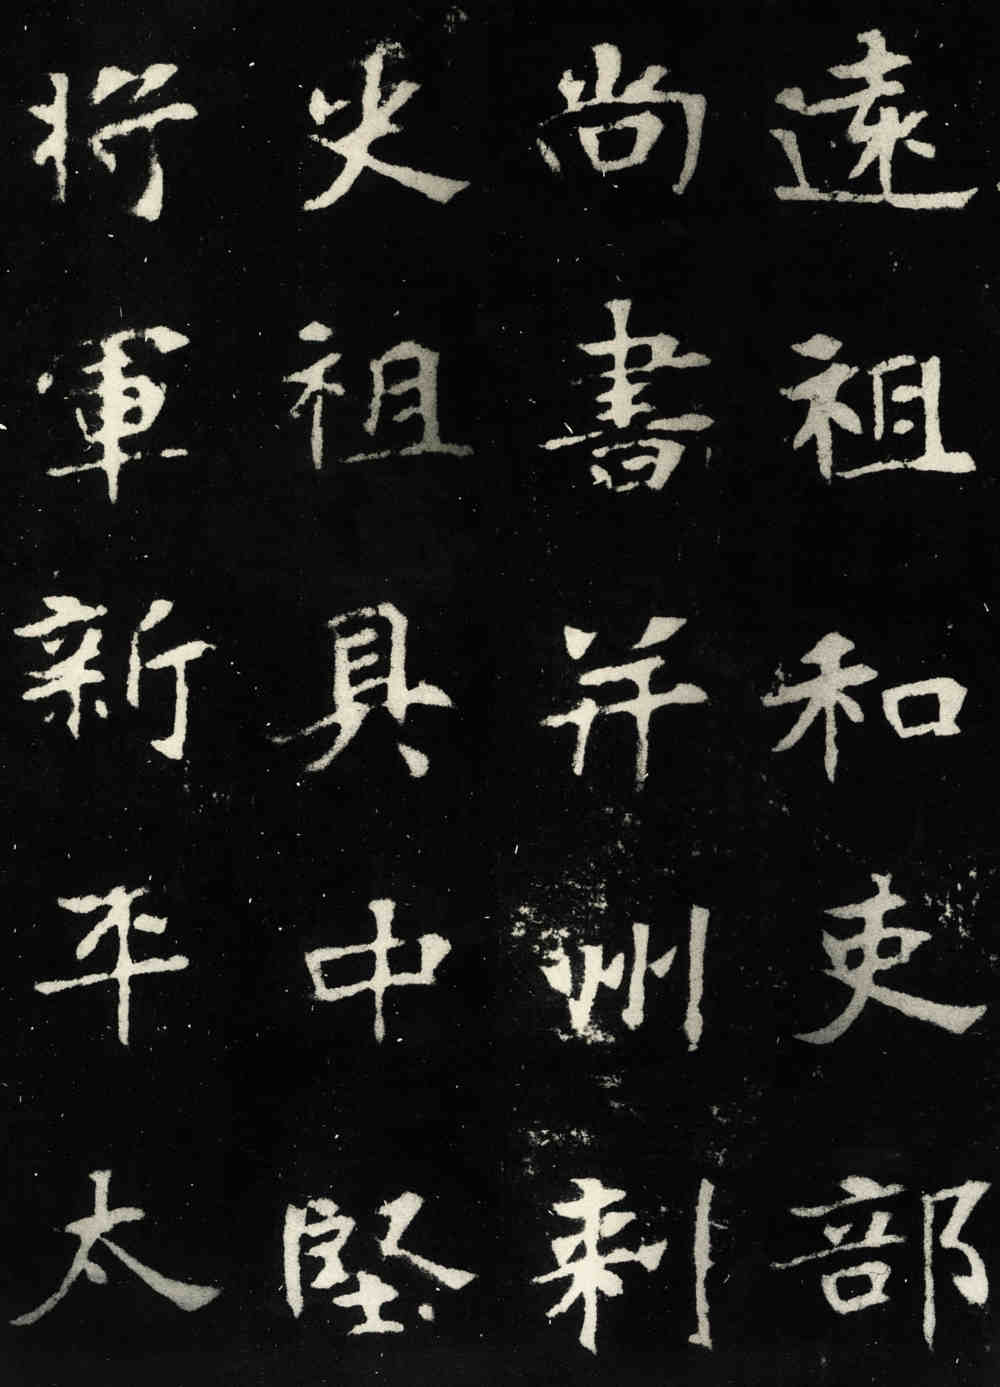 遠祖和吏部
尚書并州刾
史祖具中堅
将軍新平太